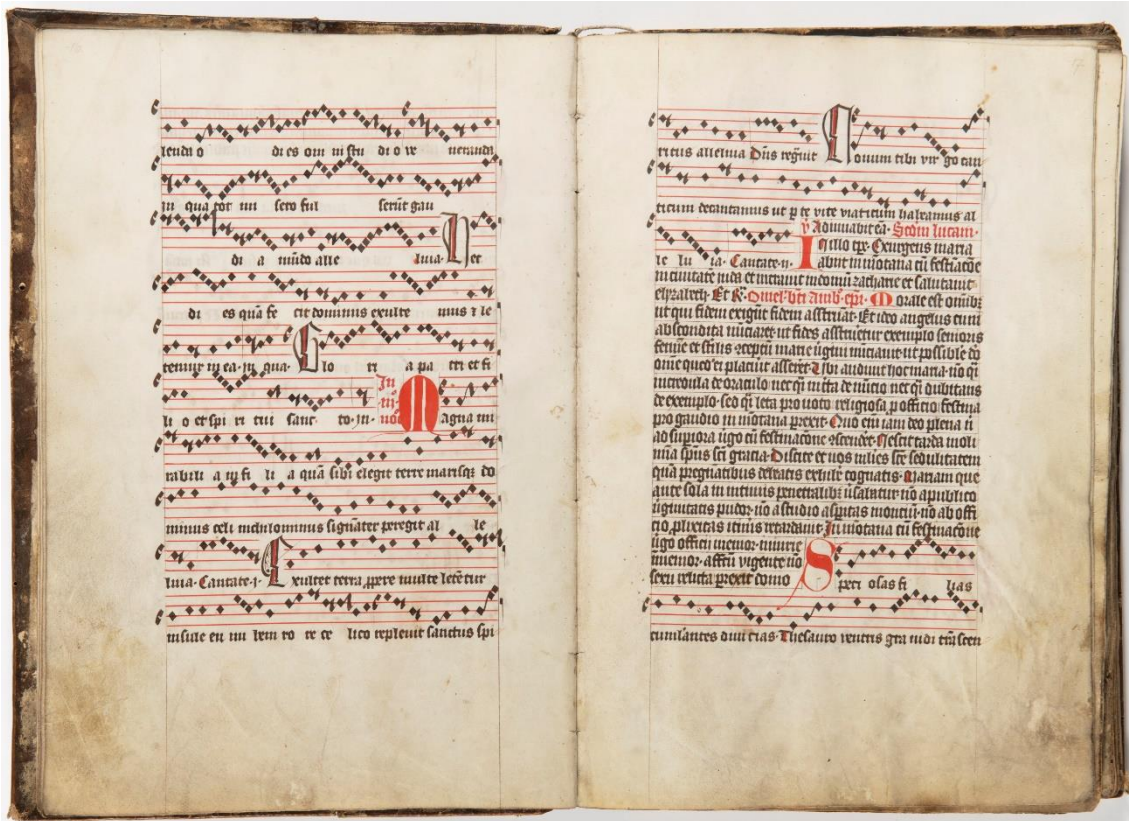 lendu o di es om ni stu di o ve neranda
in qua tot mi sero ful serūt gau
di a mūdo alle luia. Hec
di es quā fe cit dominus exulte mus z le
temur in ea. in qua. Glo ri a pa tri et fi
In
li o et spi ri tui sanc to. in. Magna mi
rabili a ip fi li a quā sibi elegit terre marisqz do
minus celi nichilominus signāter peregit al le
luia. Cantate. Exultet terra ppere multe letētur
insule en im lem ro re ce lico replevit sanctus spi
ritus alleluia Dn̄s regnīt Novum tibi virgo can
ticum decantamus ut p te vite viaticum habeamus al
Adiuvabit eā. Scdm lucam.
le lu ia. Cantate. In illo tpr. Exurgens maria
abiit in mōtana cū festiacōe
in civitatē iuda et intravit in domū zacharie et salutavit
elyzabeth. Et R. Omel' bti Amb. epi. Morale est omībz
ut qui fidem exigūt fidem astruāt. Et ideo angelus cum
abscondita nūciaret ut fides astrueretur exemplo senioris
femīe et stilis cceptū marie virgini nūciavit ut possibile dō
omne quod ei placuit assereret. Ubi audivit hoc maria nō q̄
incredula de oraculo nec q̄ incerta de nūcio nec q̄ dubitans
de exemplo. sed q̄ leta pro voto religiosa p officio festina
pro gaudio in mōtana prexit. Quo eni iam deo plena n̄
ad supiora v̄go cū festinacōne ascenderet. Nescit tarda moli
mīa spūs sci gracia. Discite et vos mulies sce sedulitatem
quā pregnātibus debeatis exhibe cognatis. Mariam que
ante sola in intimis penetralibus v̄sabatur nō a publico
v̄ginitatis pudor. nō a studio aspitas montiū. nō ab offi
cio plixitas itineris retardavit. In mōtana cū festinacōne
v̄go officij memor. iniurie
īmemor. affcū vigente nō
sexu relicta prexit domo Speci osas fi lias
cumlantes divi cias. Thesauro ventris gra vidi trāscen